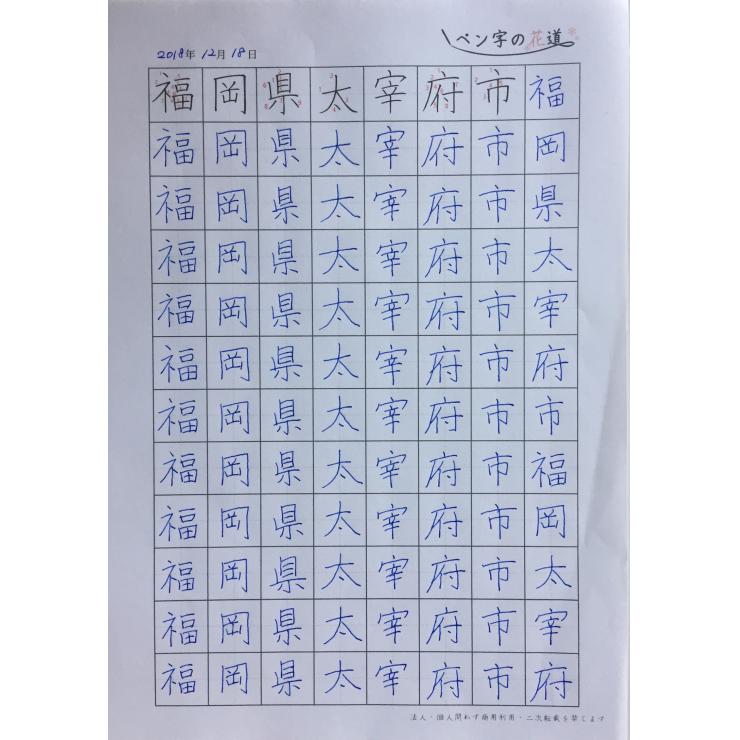 ペン字の花道
2018年 12月 18日
福岡県太宰府市福
福岡県太宰府市岡
福岡県太宰府市県
福岡県太宰府市太
福岡県太宰府市宰
福岡県太宰府市府
福岡県太宰府市市
福岡県太宰府市福
福岡県太宰府市岡
福岡県太宰府市太
福岡県太宰府市宰
福岡県太宰府市府
法人・個人問わず商用利用・二次転載を禁じます